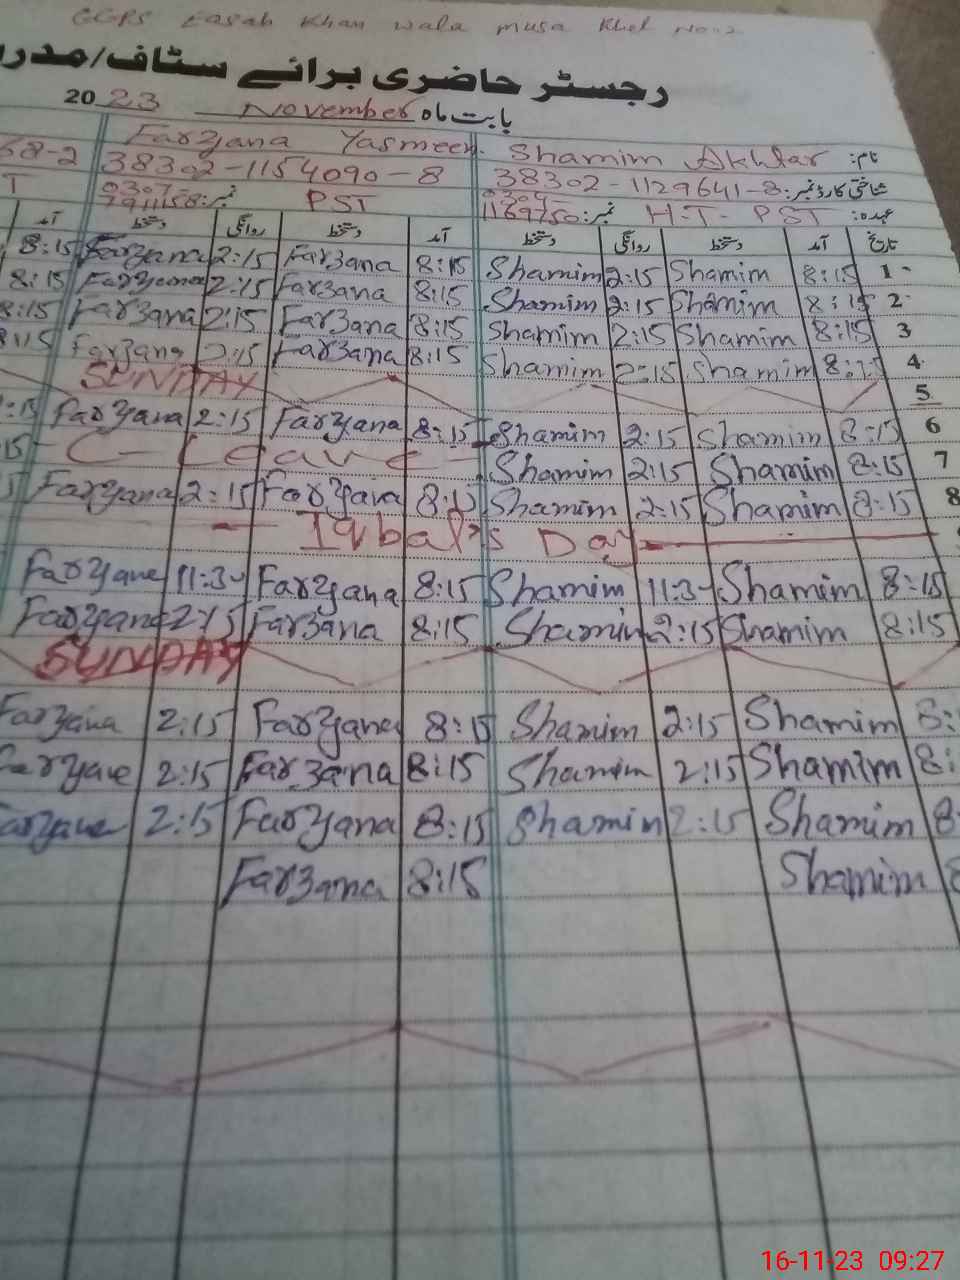 GGPS Easab Khan wala musa Khel No:2
رجسٹر حاضری برائے سٹاف/مدر
بابت ماہ November 2023
نام: Shamim Akhtar Farzana Yasmeen.
شناختی کارڈ نمبر: 38302-1129641-8 38302-1154090-8 68-2
عہدہ: H.T- PST نمبر: 1169750 PST نمبر: 0307 7911158 T
تاریخ آمد دستخط روانگی دستخط آمد دستخط روانگی دستخط آمد
1 8:15 Shamim 2:15 Shamim 8:15 Farzana 2:15 Farzana 8:15
2 8:15 Shamim 2:15 Shamim 8:15 Farzana 2:15 Farzana 8:15
3 8:15 Shamim 2:15 Shamim 8:15 Farzana 2:15 Farzana 8:15
4 8:15 Shamim 2:15 Shamim 8:15 Farzana 2:15 Farzana 8:15
5 SUNDAY
6 8:15 Shamim 2:15 Shamim 8:15 Farzana 2:15 Farzana :15
7 8:15 Shamim 2:15 Shamim C- Leave 15
8 8:15 Shamim 2:15 Shamim 8:15 Farzana 2:15 Farzana 5
Iqbal's Day
8:15 Shamim 11:3 Shamim 8:15 Farzana 11:3 Farzane
8:15 Shamim 2:15 Shamim 8:15 Farzana 2:15 Farzana
SUNDAY
8: Shamim 2:15 Shamim 8:15 Farzana 2:15 Farzana
8: Shamim 2:15 Shamim 8:15 Farzana 2:15 Farzane
8 Shamim 2:15 Shamim 8:15 Farzana 2:15 arzane
8 Shamim 8:15 Farzana
16-11-23 09:27